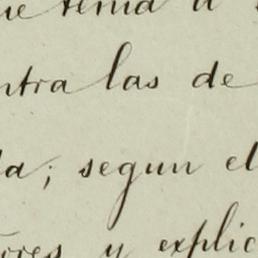 ue tenia a
ntra las de
la; segun el
ores y explic